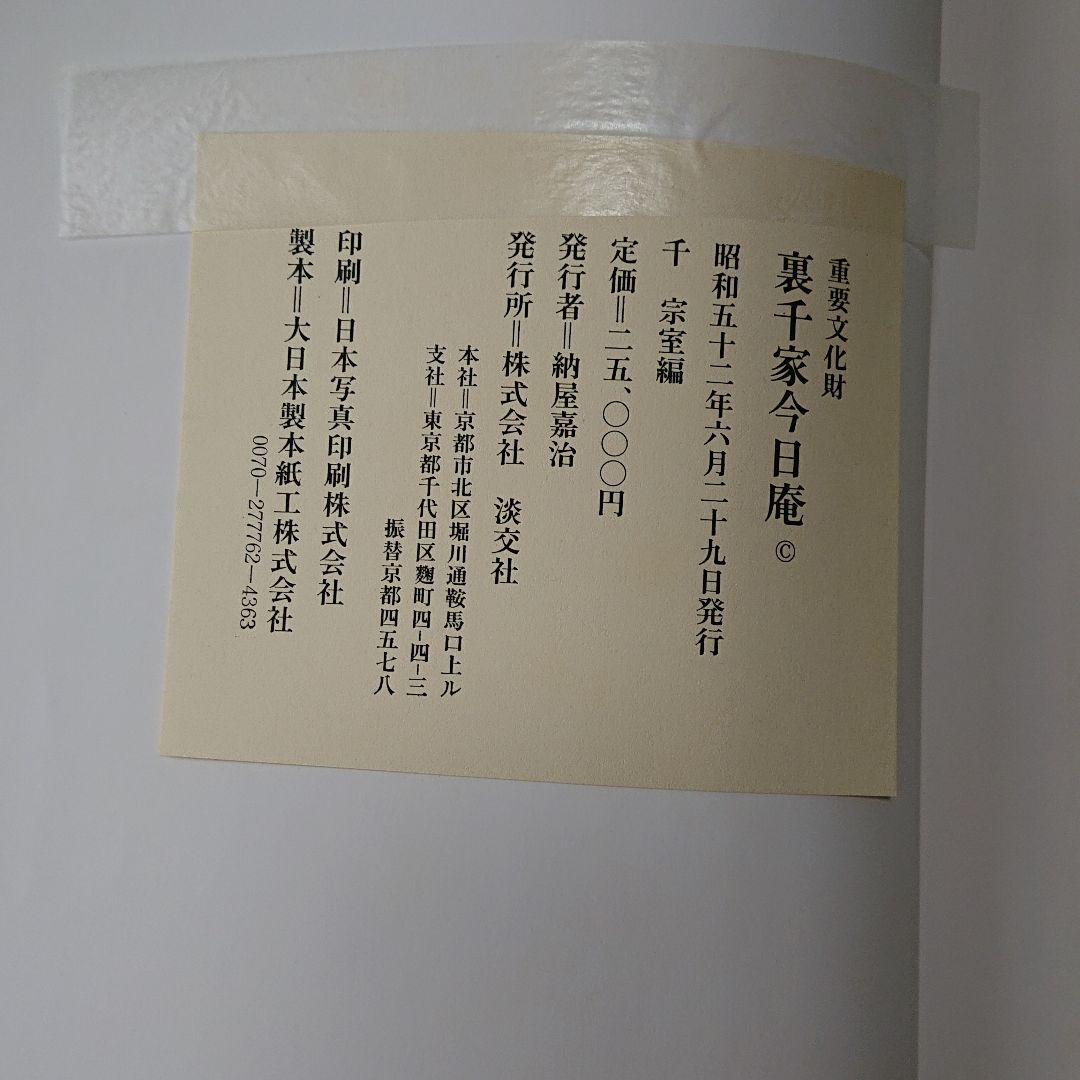 重要文化財
裏千家今日庵 ©
昭和五十二年六月二十九日発行
千 宗室編
定価＝二五、〇〇〇円
発行者＝納屋嘉治
発行所＝株式会社 淡交社
本社＝京都市北区堀川通鞍馬口上ル
支社＝東京都千代田区麴町四-四-三
振替京都四五七八
印刷＝日本写真印刷株式会社
製本＝大日本製本紙工株式会社
0070—277762—4363